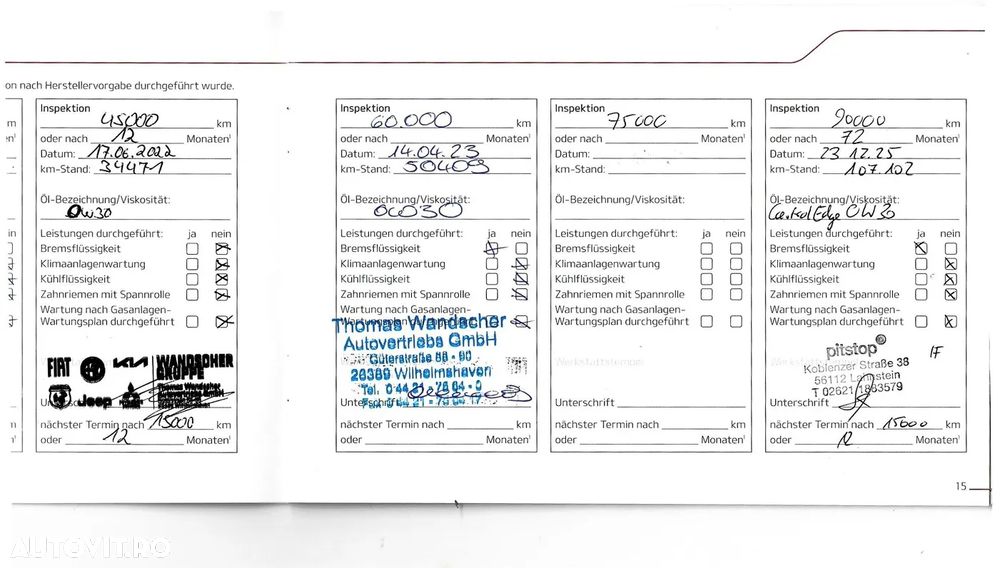 on nach Herstellervorgabe durchgeführt wurde.
Inspektion
45000 km
oder nach 12 Monaten¹
Datum: 17.06.2022
km-Stand: 34471
Öl-Bezeichnung/Viskosität:
0W30
Leistungen durchgeführt: ja nein
Bremsflüssigkeit
Klimaanlagenwartung
Kühlflüssigkeit
Zahnriemen mit Spannrolle
Wartung nach Gasanlagen-
Wartungsplan durchgeführt
FIAT KIA WANDSCHER
GRUPPE
Jeep
Thomas Wandscher
Autovertriebs GmbH
nächster Termin nach 15000 km
oder 12 Monaten¹
Inspektion
60.000 km
oder nach Monaten¹
Datum: 14.04.23
km-Stand: 50409
Öl-Bezeichnung/Viskosität:
0W30
Leistungen durchgeführt: ja nein
Bremsflüssigkeit
Klimaanlagenwartung
Kühlflüssigkeit
Zahnriemen mit Spannrolle
Wartung nach Gasanlagen-
Thomas Wandscher
Autovertriebs GmbH
Güterstraße 88 - 90
26389 Wilhelmshaven
Tel. 0 44 21 - 78 64 - 0
Fax 0 44 21 - 78 64 17
Unterschrift
nächster Termin nach km
oder Monaten¹
Inspektion
75000 km
oder nach Monaten¹
Datum:
km-Stand:
Öl-Bezeichnung/Viskosität:
Leistungen durchgeführt: ja nein
Bremsflüssigkeit
Klimaanlagenwartung
Kühlflüssigkeit
Zahnriemen mit Spannrolle
Wartung nach Gasanlagen-
Wartungsplan durchgeführt
Werkstattstempel
Unterschrift
nächster Termin nach km
oder Monaten¹
Inspektion
90000 km
oder nach 72 Monaten¹
Datum: 23 12.25
km-Stand: 107.102
Öl-Bezeichnung/Viskosität:
Castrol Edge 0W30
Leistungen durchgeführt: ja nein
Bremsflüssigkeit
Klimaanlagenwartung
Kühlflüssigkeit
Zahnriemen mit Spannrolle
Wartung nach Gasanlagen-
Wartungsplan durchgeführt
pitstop
Koblenzer Straße 38
56112 Lahnstein
T 02621 1883579
Unterschrift
nächster Termin nach 15000 km
oder 12 Monaten¹
15
AUTOVIT.RO